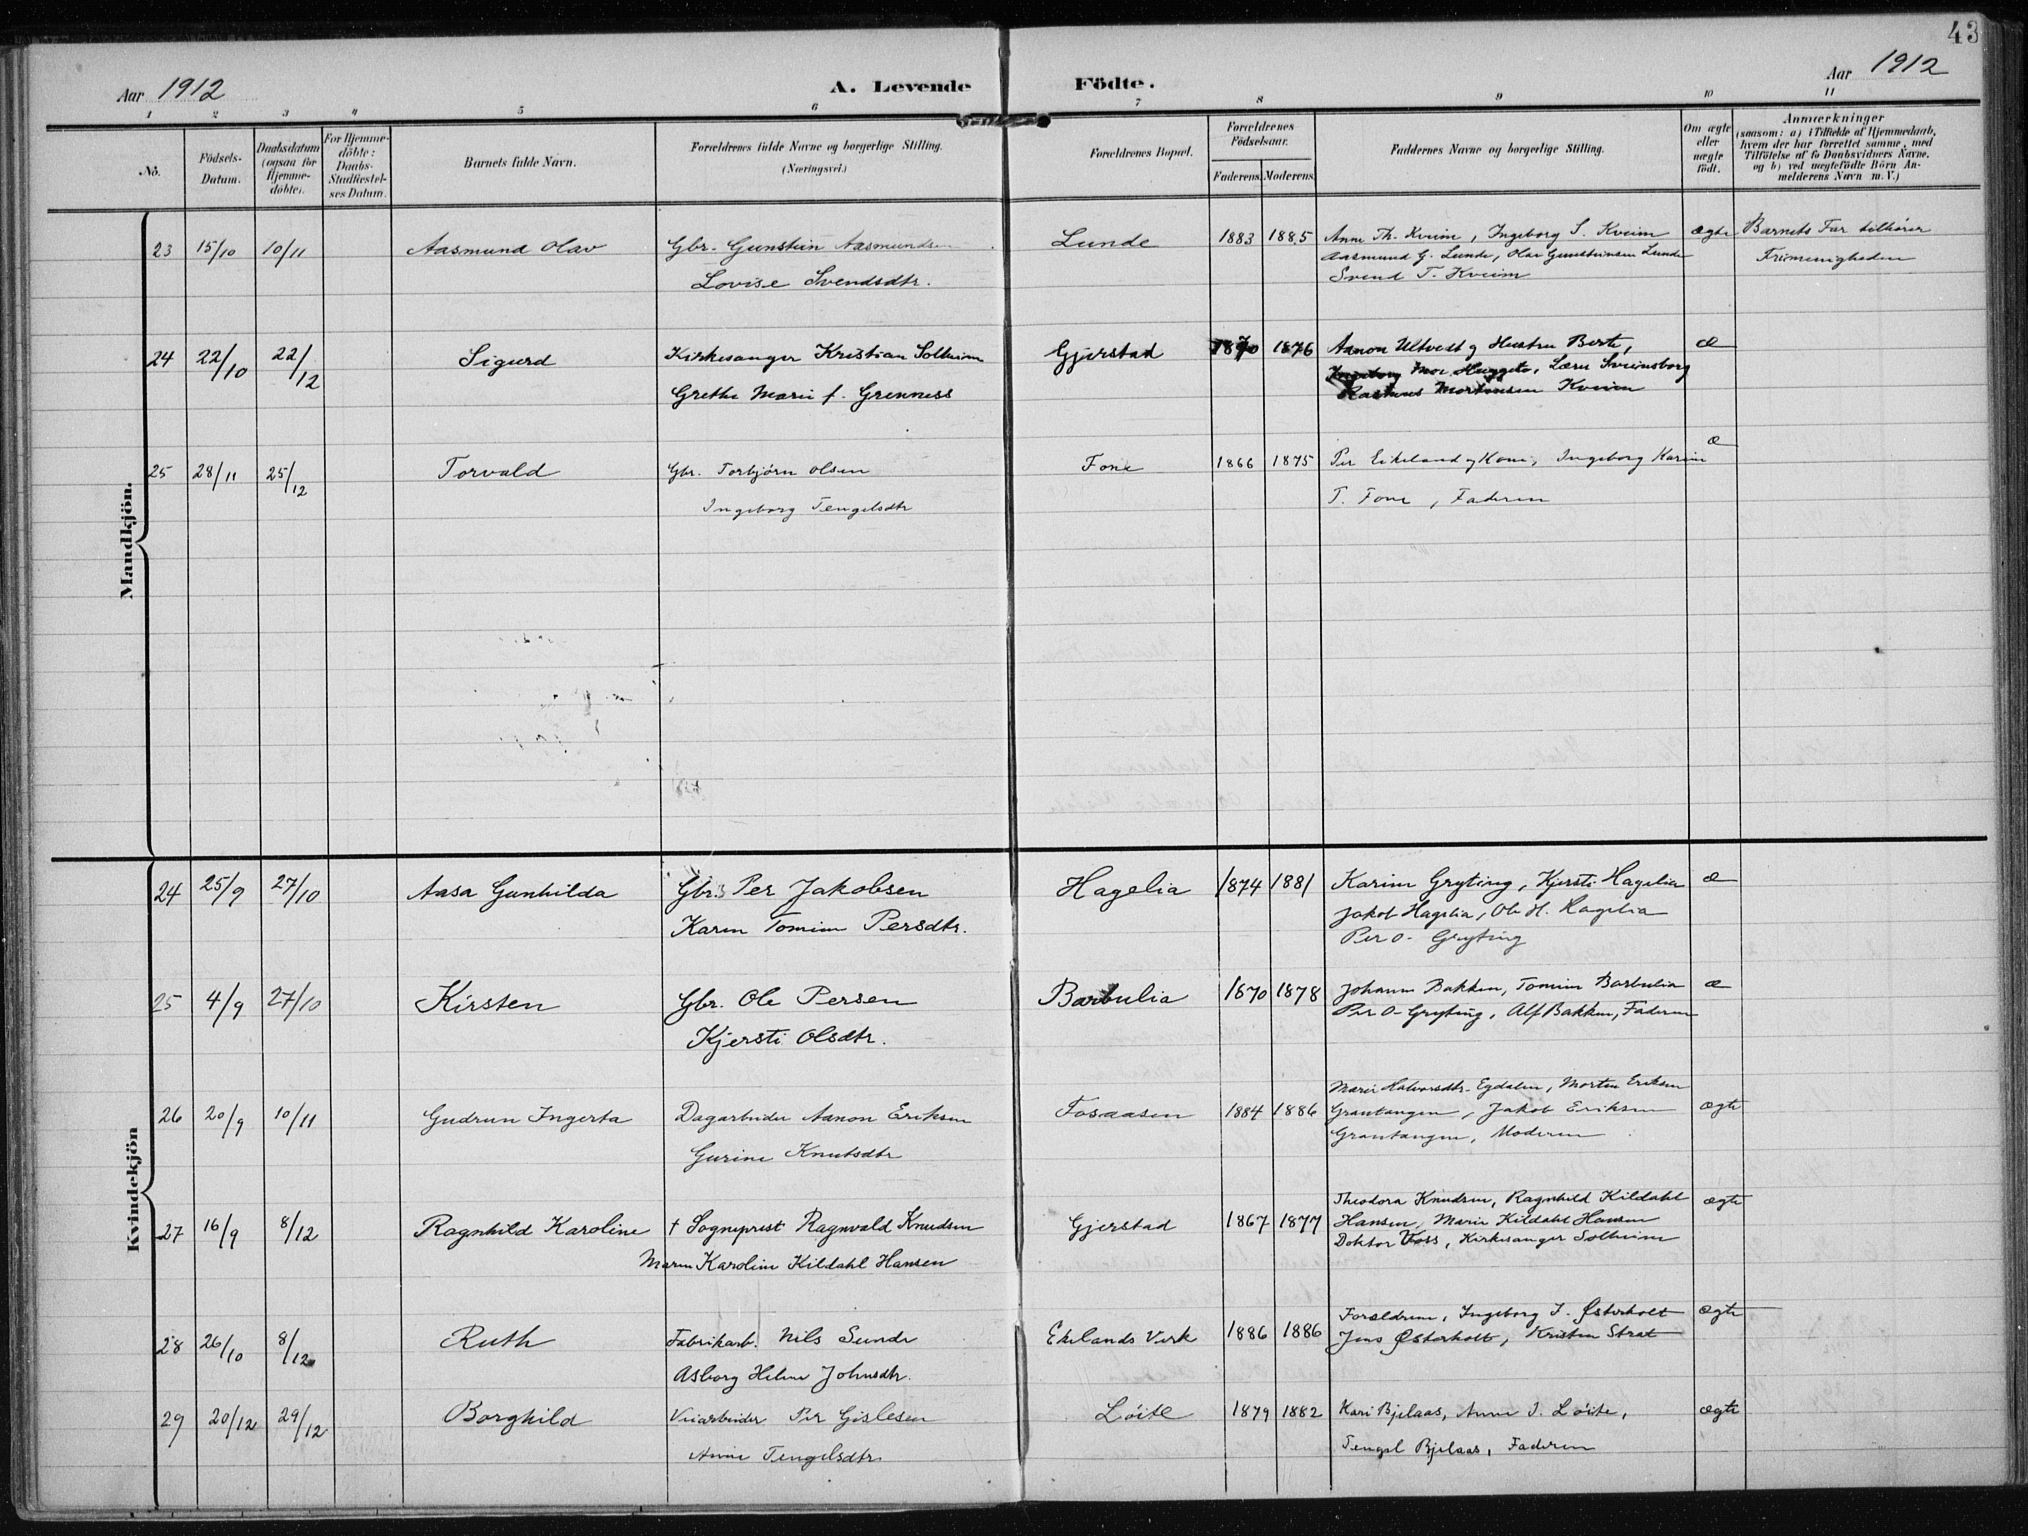 43
Aar 1912
A. Levende Födte.
Aar 1912
1 2 3 4 5 6 7 8 9 10 11
No. Födsels-Datum. Daabsdatum (ogsaa for Hjemme-döbte). For Hjemme-döbte: Daabs-Stadfæstel-ses Datum. Barnets fulde Navn. Forældrenes fulde Navne og borgerlige Stilling. (Næringsvei.) Forældrenes Bopæl. Forældrenes Födselsaar. Faderens. Moderens. Faddernes Navne og borgerlige Stilling. Om ægte eller uægte födt. Anmærkninger (saasom: a) i Tilfælde af Hjemmedaab, hvem der har forrettet samme, med Tilföielse af to Daabsvidners Navne, og b) ved uægtefödte Börn An-melderens Navn m. V.)
Mandkjön.
23 15/10 10/11 Aasmund Olav Gbr. Gunstein Aasmundsen Lunde 1883 1885 Anne Th. Kveim, Ingeborg S. Kveim ægte Barnets Far tilhører
Aasmund G. Lunde, Olav Gunsteinsen Lunde Frimenigheden
Lovise Svendsdtr. Svend T. Kveim
24 22/10 22/12 Sigurd Kirkesanger Kristian Solheim Gjerstad 1870 1876 Aanon Ultvedt og Hustru Berte, æ
Moe, Lærer Sveinsborg
Grethe Marie f. Grenness Rasmus Mortensen Kveim
25 28/11 25/12 Torvald Gbr. Torbjørn Olsen Fone 1866 1875 Per Eikeland og Kone, Ingeborg Karine æ
Ingeborg Tengelsdtr T. Fone, Faderen
Kvindekjön
24 25/9 27/10 Aasa Gunhilda Gbr. Per Jakobsen Hagelia 1874 1881 Karine Gryting, Kjersti Hagelia æ
Karen Tomine Persdtr. Jakob Hagelia, Ole H. Hagelia
Per O. Gryting
25 4/9 27/10 Kirsten Gbr. Ole Persen Barbulia 1870 1878 Johanne Bakken, Tomine Barbulia æ
Kjersti Olsdtr. Per O. Gryting, Alf Bakken, Faderen
26 20/9 10/11 Gudrun Ingerta Dagarbeider Aanon Eriksen Fosaasen 1884 1886 Marie Halvorsdtr. Egdalen, Morten Eriksen ægte
Grantangen, Jakob Eriksen
Gurine Knutsdtr Grantangen, Moderen
27 16/9 8/12 Ragnhild Karoline † Sogneprest Ragnvald Knudsen Gjerstad 1867 1877 Theodora Knudsen, Ragnhild Kildahl ægte
Hansen, Marie Kildahl Hansen
Maren Karoline Kildahl Hansen Doktor Voss, Kirkesanger Solheim
28 26/10 8/12 Ruth Fabrikarb. Nils Sunde Ekelands Verk 1886 1886 Forældrene, Ingeborg J. Østerholt ægte
Asborg Helene Johnsdtr. Jens Østerholt, Kristen Strat
29 20/12 29/12 Borghild Veiarbeider Per Gislesen Løite 1879 1882 Kari Bjelaas, Anne J. Løite, ægte
Anne Tengelsdtr. Tengel Bjelaas, Faderen